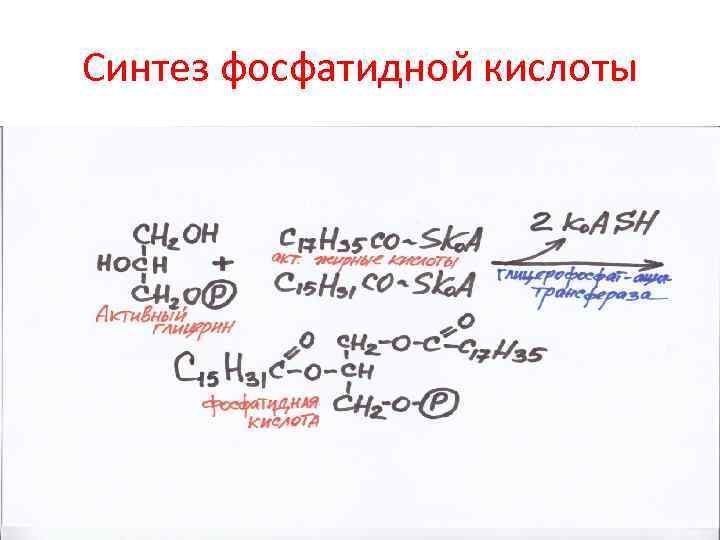 Синтез фосфатидной кислоты
CH2OH
HOCH
CH2OP
Активный глицерин
+
C17H35CO~SKoA
акт. жирные кислоты
C15H31CO~SKoA
2 KoASH
глицерофосфат-ацил-
трансфераза
O
CH2-O-C-C17H35
O
C15H31C-O-CH
CH2-O-P
фосфатидная
кислота